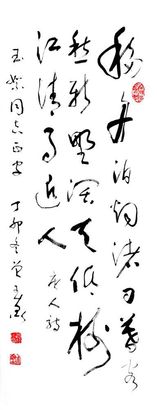 移舟泊烟渚日暮客
愁新野旷天低树
江清月近人
唐人诗
玉柴同志正字 丁卯冬